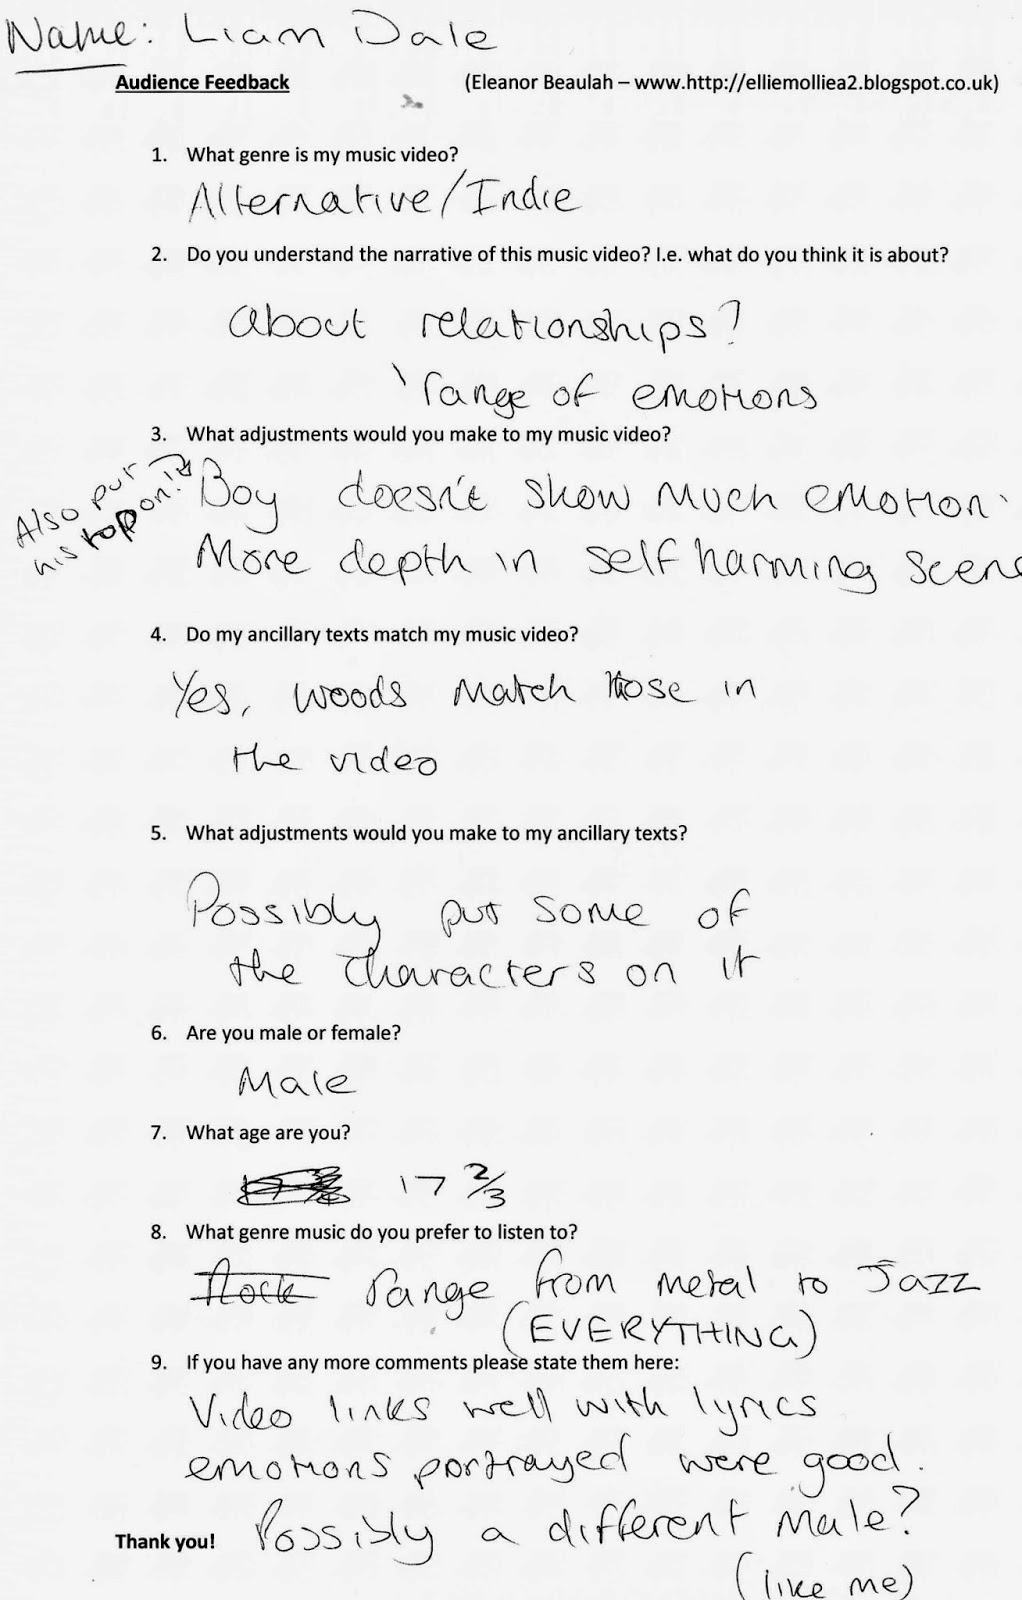 Name: Liam Dale
Audience Feedback (Eleanor Beaulah – www.http://elliemolliea2.blogspot.co.uk)
1. What genre is my music video?
Alternative/Indie
2. Do you understand the narrative of this music video? I.e. what do you think it is about?
about relationships?
range of emotions
3. What adjustments would you make to my music video?
Also put
his top on!
Boy doesn't show much emotion.
More depth in self harming scene
4. Do my ancillary texts match my music video?
Yes, woods match those in
the video
5. What adjustments would you make to my ancillary texts?
Possibly put some of
the characters on it
6. Are you male or female?
Male
7. What age are you?
17 2/3
8. What genre music do you prefer to listen to?
Rock range from metal to Jazz
(EVERYTHING)
9. If you have any more comments please state them here:
Video links well with lyrics
emotions portrayed were good.
Thank you! Possibly a different male?
(like me)